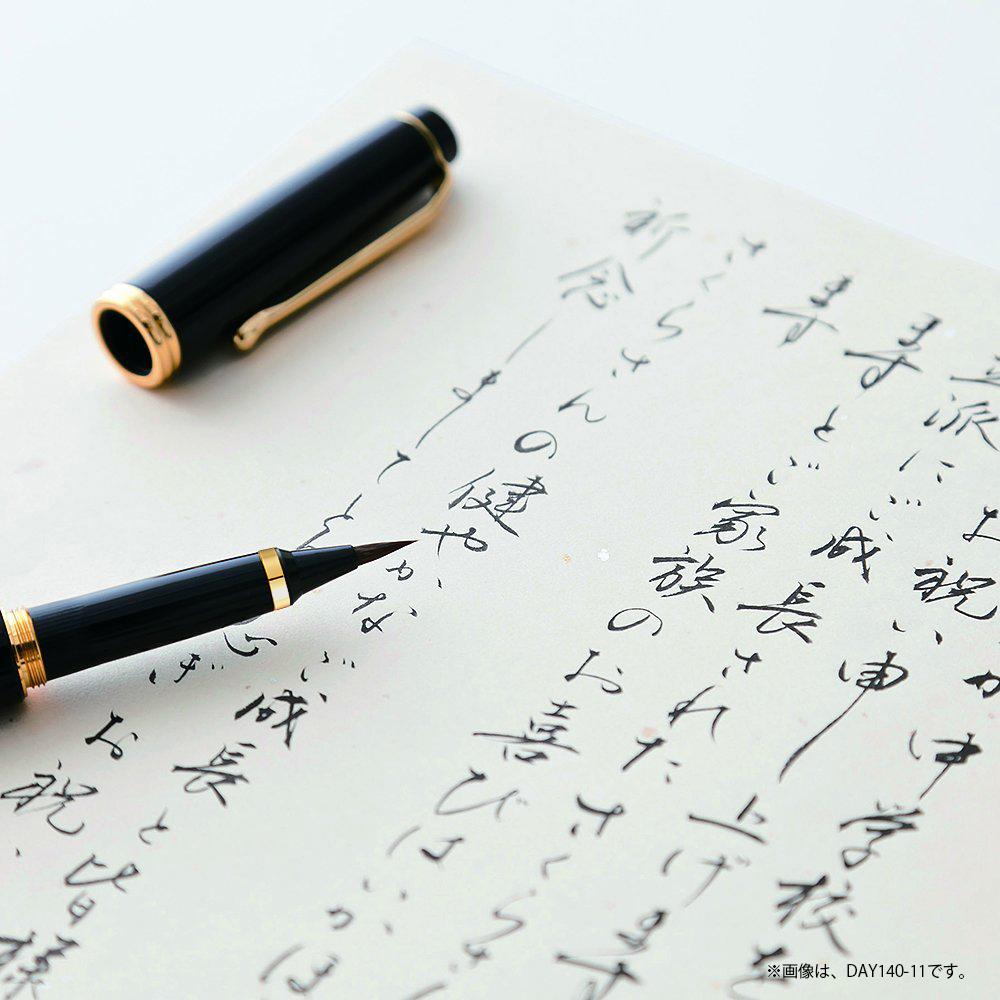 か中学校を
お祝い申し上げます
立派にご成長されたさくらさ
ますとご家族のお喜びはいかほ
ます
さくらさんの健やかなご成長と皆様
祈念しましてと急ぎお祝
※画像は、DAY140-11です。